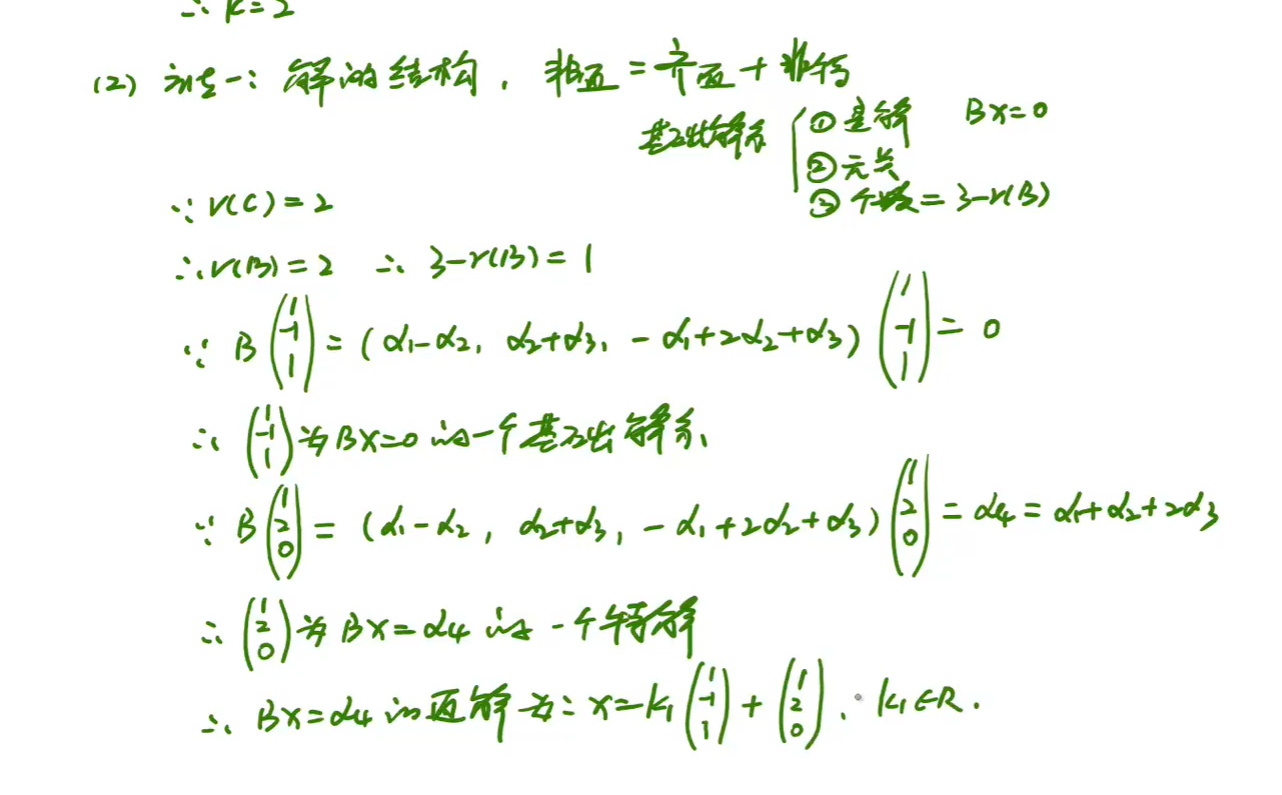 ∴ k=2
(2) 方法一：解的结构，非通=齐通+非特
基础解系 ①是解 BX=0
②无关
③个数=3-r(B)
∵ r(C)=2
∴ r(B)=2 ∴ 3-r(B)=1
∵ B(1 -1 1)=(α1-α2, α2+α3, -α1+2α2+α3)(1 -1 1)=0
∴ (1 -1 1)为BX=0的一个基础解系、
∵ B(1 2 0)=(α1-α2, α2+α3, -α1+2α2+α3)(1 2 0)=α4=α1+α2+2α3
∴ (1 2 0)为BX=α4的一个特解
∴ BX=α4的通解为：x=k1(1 -1 1)+(1 2 0). k1∈R.